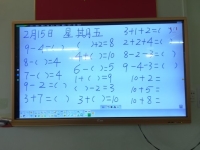 2月15日 星期五 3+1+2=( )
9-4=( ) ( )+2=8 2+2+4=( )
8-( )=4 4+( )=10 8-2-2=( )
7-( )=4 6-( )=5 9-4-3=( )
9-2=( ) 1+( )=9 10+2=
( )-2=3 10+5=
3+7=( ) 3+( )=10 10+8=